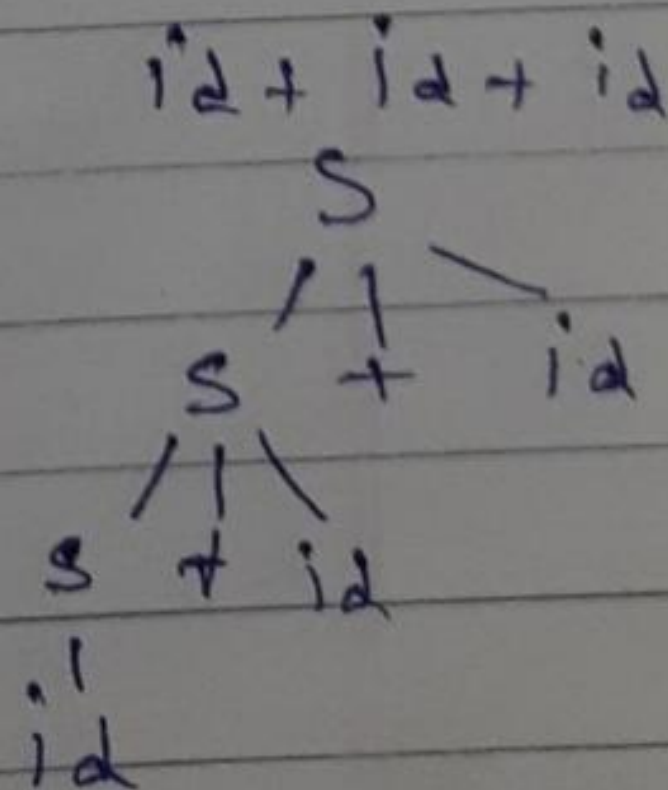 id + id + id
S
S + id
S + id
id